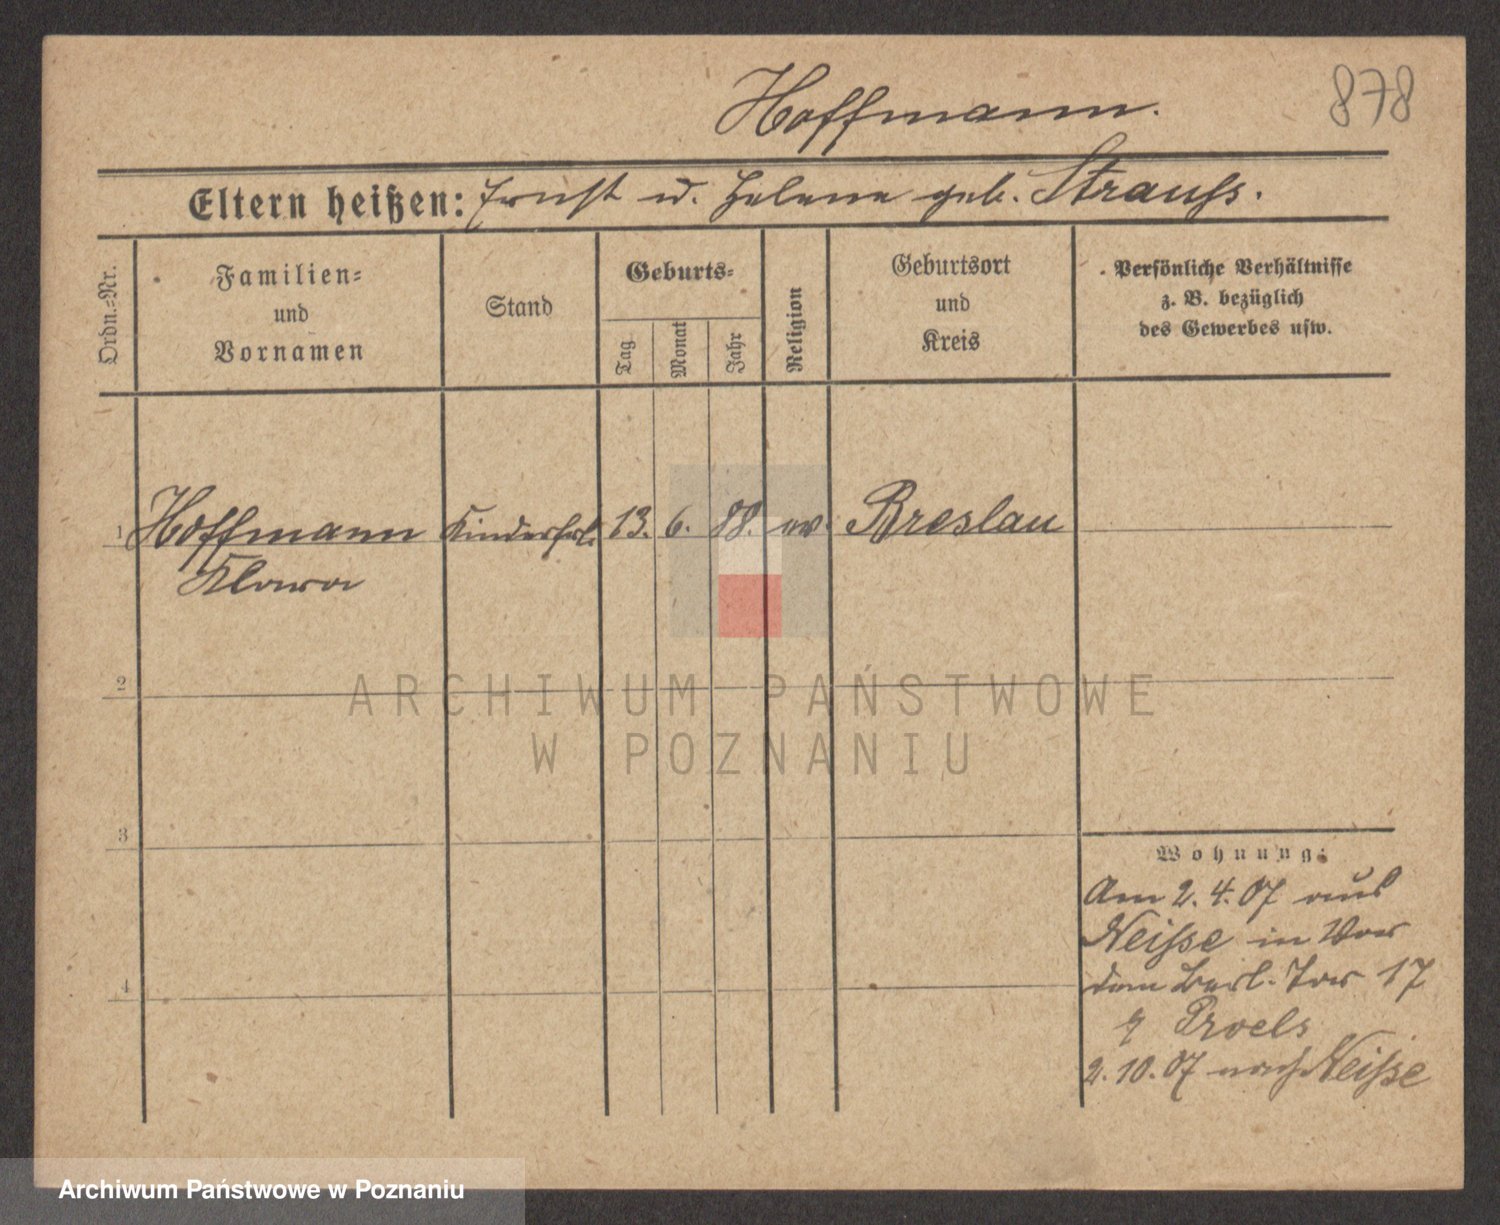 Hoffmann.
878
Eltern heißen: Ernst u. Helene geb. Strauſs.
Ordn.=Nr.
Familien=
und
Vornamen
Stand
Geburts=
Tag.
Monat
Jahr
Religion
Geburtsort
und
Kreis
Persönliche Verhältnisse
z. B. bezüglich
des Gewerbes usw.
1 Hoffmann Kinderfrl. 13. 6. 88. ev. Breslau
Klara
2
ARCHIWUM PAŃSTWOWE
W POZNANIU
3
Wohnung:
Am 2. 4. 07 aus
Neiſse in Vor
4
dem Berl. Tor 17
Proels
2. 10. 07 nach Neiſse
Archiwum Państwowe w Poznaniu